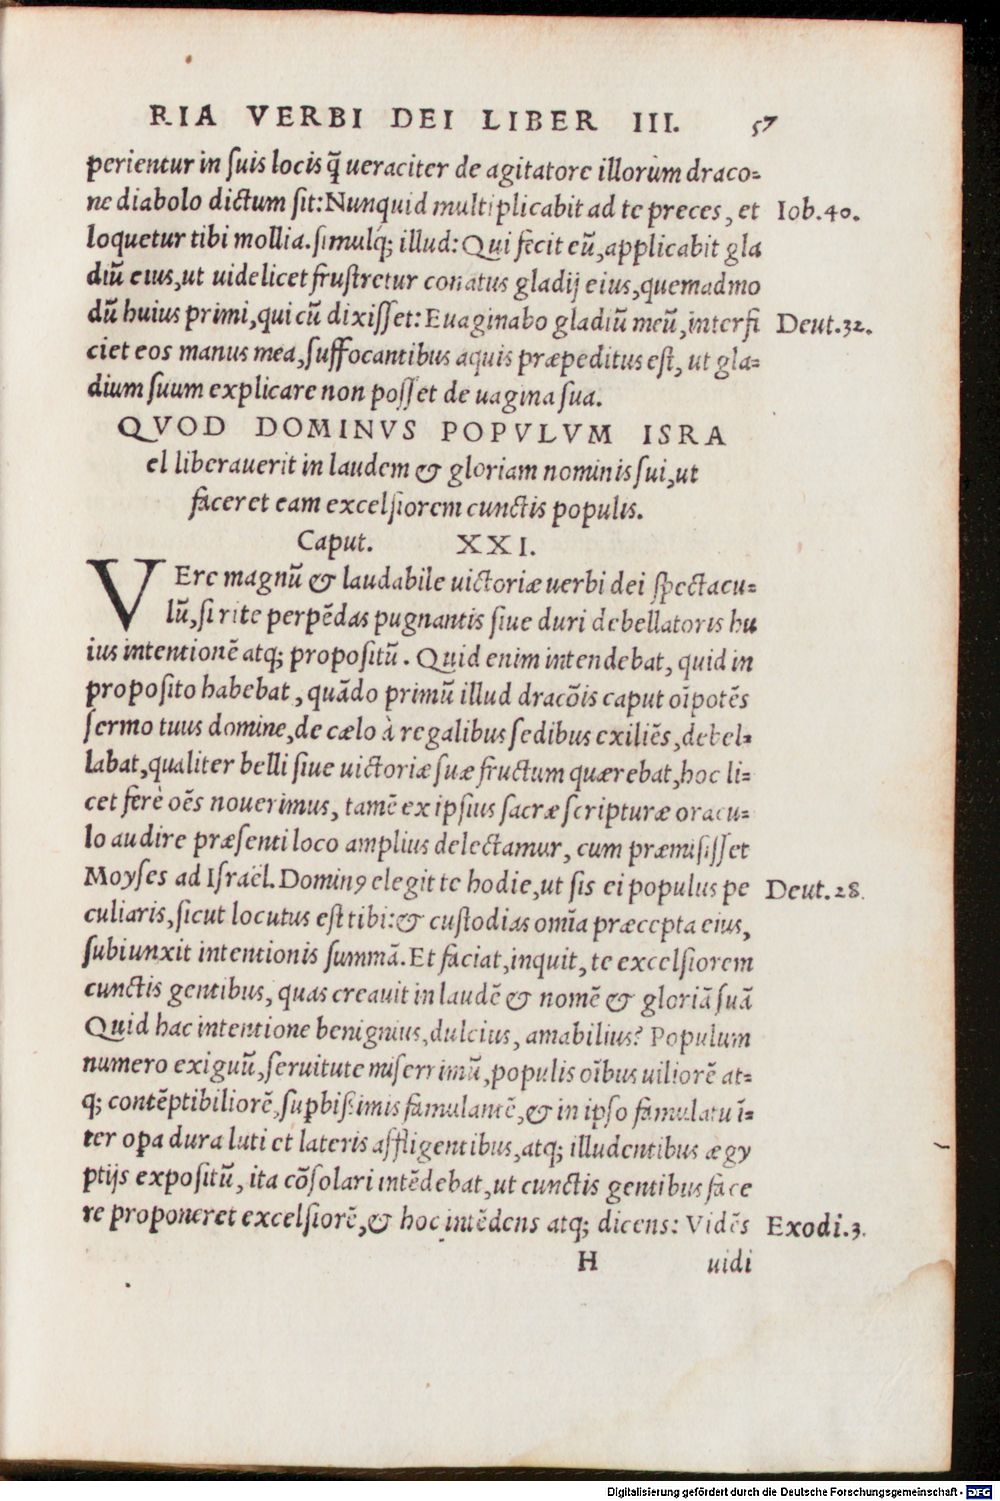 RIA VERBI DEI LIBER III. 57
perientur in suis locis q̃ ueraciter de agitatore illorum draco=
ne diabolo dictum sit: Nunquid multiplicabit ad te preces, et Iob.40.
loquetur tibi mollia. simulq; illud: Qui fecit eũ, applicabit gla
diũ eius, ut uidelicet frustretur conatus gladij eius, quemadmo
dũ huius primi, qui cũ dixisset: Euaginabo gladiũ meũ, interfi Deut.32.
ciet eos manus mea, suffocantibus aquis præpeditus est, ut gla=
dium suum explicare non posset de uagina sua.
QVOD DOMINVS POPVLVM ISRA
el liberauerit in laudem & gloriam nominis sui, ut
faceret eam excelsiorem cunctis populis.
Caput. XXI.
VEre magnũ & laudabile uictoriæ uerbi dei spectacu=
lũ, si rite perpẽdas pugnantis siue duri debellatoris hu
ius intentionẽ atq; propositũ. Quid enim intendebat, quid in
proposito habebat, quãdo primũ illud dracõis caput oĩpotẽs
sermo tuus domine, de cælo à regalibus sedibus exiliẽs, debel=
labat, qualiter belli siue uictoriæ suæ fructum quærebat, hoc li=
cet ferè oẽs nouerimus, tamẽ ex ipsius sacræ scripturæ oracu=
lo audire præsenti loco amplius delectamur, cum præmisisset
Moyses ad Israël. Dominꝰ elegit te hodie, ut sis ei populus pe Deut.28.
culiaris, sicut locutus est tibi: & custodias omĩa præcepta eius,
subiunxit intentionis summã. Et faciat, inquit, te excelsiorem
cunctis gentibus, quas creauit in laudẽ & nomẽ & gloriã suã
Quid hac intentione benignius, dulcius, amabilius? Populum
numero exiguũ, seruitute miserrimũ, populis oĩbus uiliorẽ at=
q; contẽptibiliorẽ, supbißimis famulantẽ, & in ipso famulatu ĩ=
ter opa dura luti et lateris affligentibus, atq; illudentibus ægy
ptijs expositũ, ita cõsolari intẽdebat, ut cunctis gentibus face
re proponeret excelsiorẽ, & hoc intẽdens atq; dicens: Vidẽs Exodi.3.
H uidi
Digitalisierung gefördert durch die Deutsche Forschungsgemeinschaft - DFG